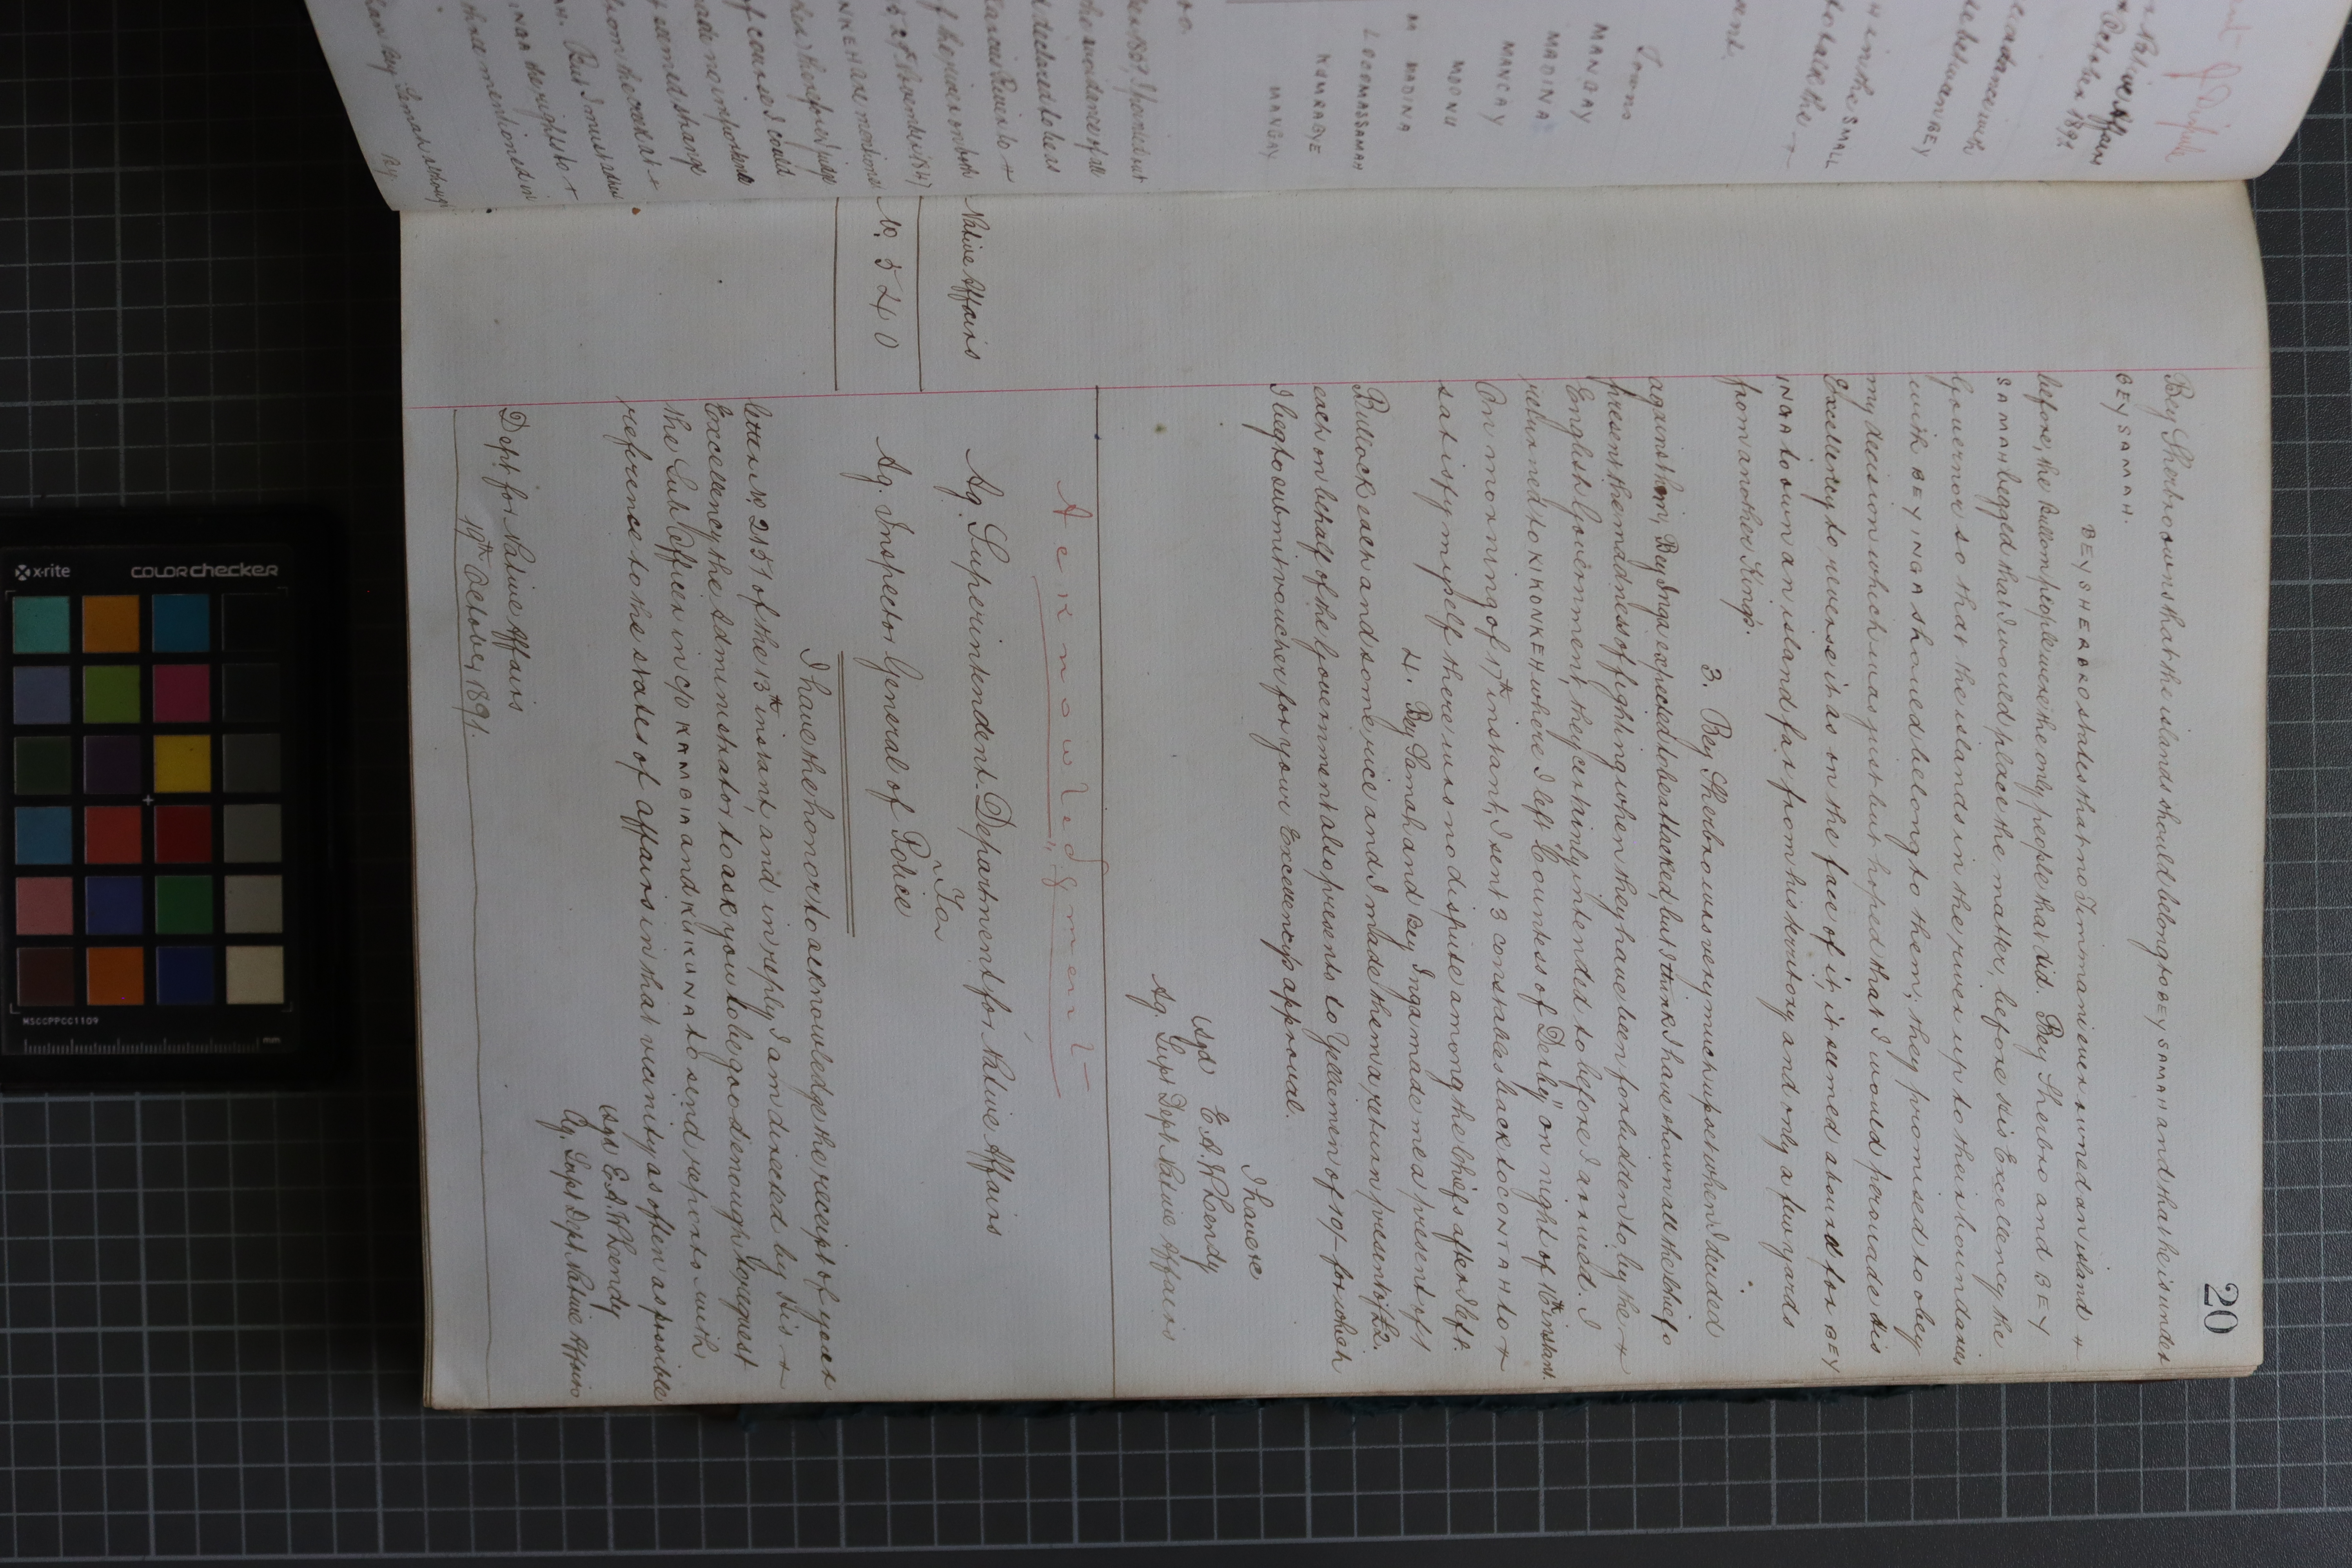 20
Bey Sherbro owns that the islands should belong to BEY SAMAH and that he is under
BEY SAMAH.
BEY SHERBRO states that no Timmani ever owned an island +
before, the Bullom people were the only people that did. Bey Sherbro and BEY
SAMAH begged that I would place the matter, before His Excellency the
Governor so that the islands in the river up to their boundaries
with BEY INGA should belong to them; they promised to obey
my decision which was just but hoped that I would persuade His
Excellency to reverse it as on the face of it, it seemed absurd for BEY
INGA to own an island far from his territory and only a few yards
from another King's.
3. Bey Sherbro was very much upset when I decided
against him, Bey Inga expected to be attacked, but I think I have shown all the chiefs
present the madness of fighting when they have been forbidden to, by the +
English Government, they certainly intended to before I arrived. I
returned to KIKONKEH where I left "Countess of Derby" on night of 16th instant.
On morning of 17th instant, I sent 3 constables back to ROONTAH to +
satisfy myself there was no dispute among the chiefs after I left.
4. Bey Samah and Bey Inga made me a present of 1
Bullock each and some rice and I made them a return present of £2.
each on behalf of the Government also presents to Yelliemen of 10/- for which
I beg to submit voucher for your Excellency's approval.
I have &c
sgd E. A. W. Hoendy
Ag. Supt Dept Native Affairs
Acknowledgment
Native Affairs
No. 540
Ag. Superintendent. Department for Native Affairs
To
Ag. Inspector General of Police
I have the honor to acknowledge the receipt of your
letter No 2151 of the 13th instant, and in reply, I am directed by His +
Excellency the Administrator to ask you to be good enough to request
the Sub Officer in c/o KAMBIA and KIKUNA to send reports with
reference to the states of affairs in that vicinity as often as possible
sgd E. A. W. Hoendy
Ag. Supt Dept Native Affairs
Dept. for Native Affairs
19th October 1891.
Native Affairs
October 1891
BEY
in the SMALL
to talk the +
Towns
MANGAY
MADINA
MANCAY
MODNU
MADINA
LOOOMASSAMAH
KUMRABYE
MANGAY
declared to be as
of the river on both
of course I could
made no important
seemed strange
But I must
INGA the rights to +
those mentioned in
x-rite
COLORchecker
MSCCPPCC1109
mm